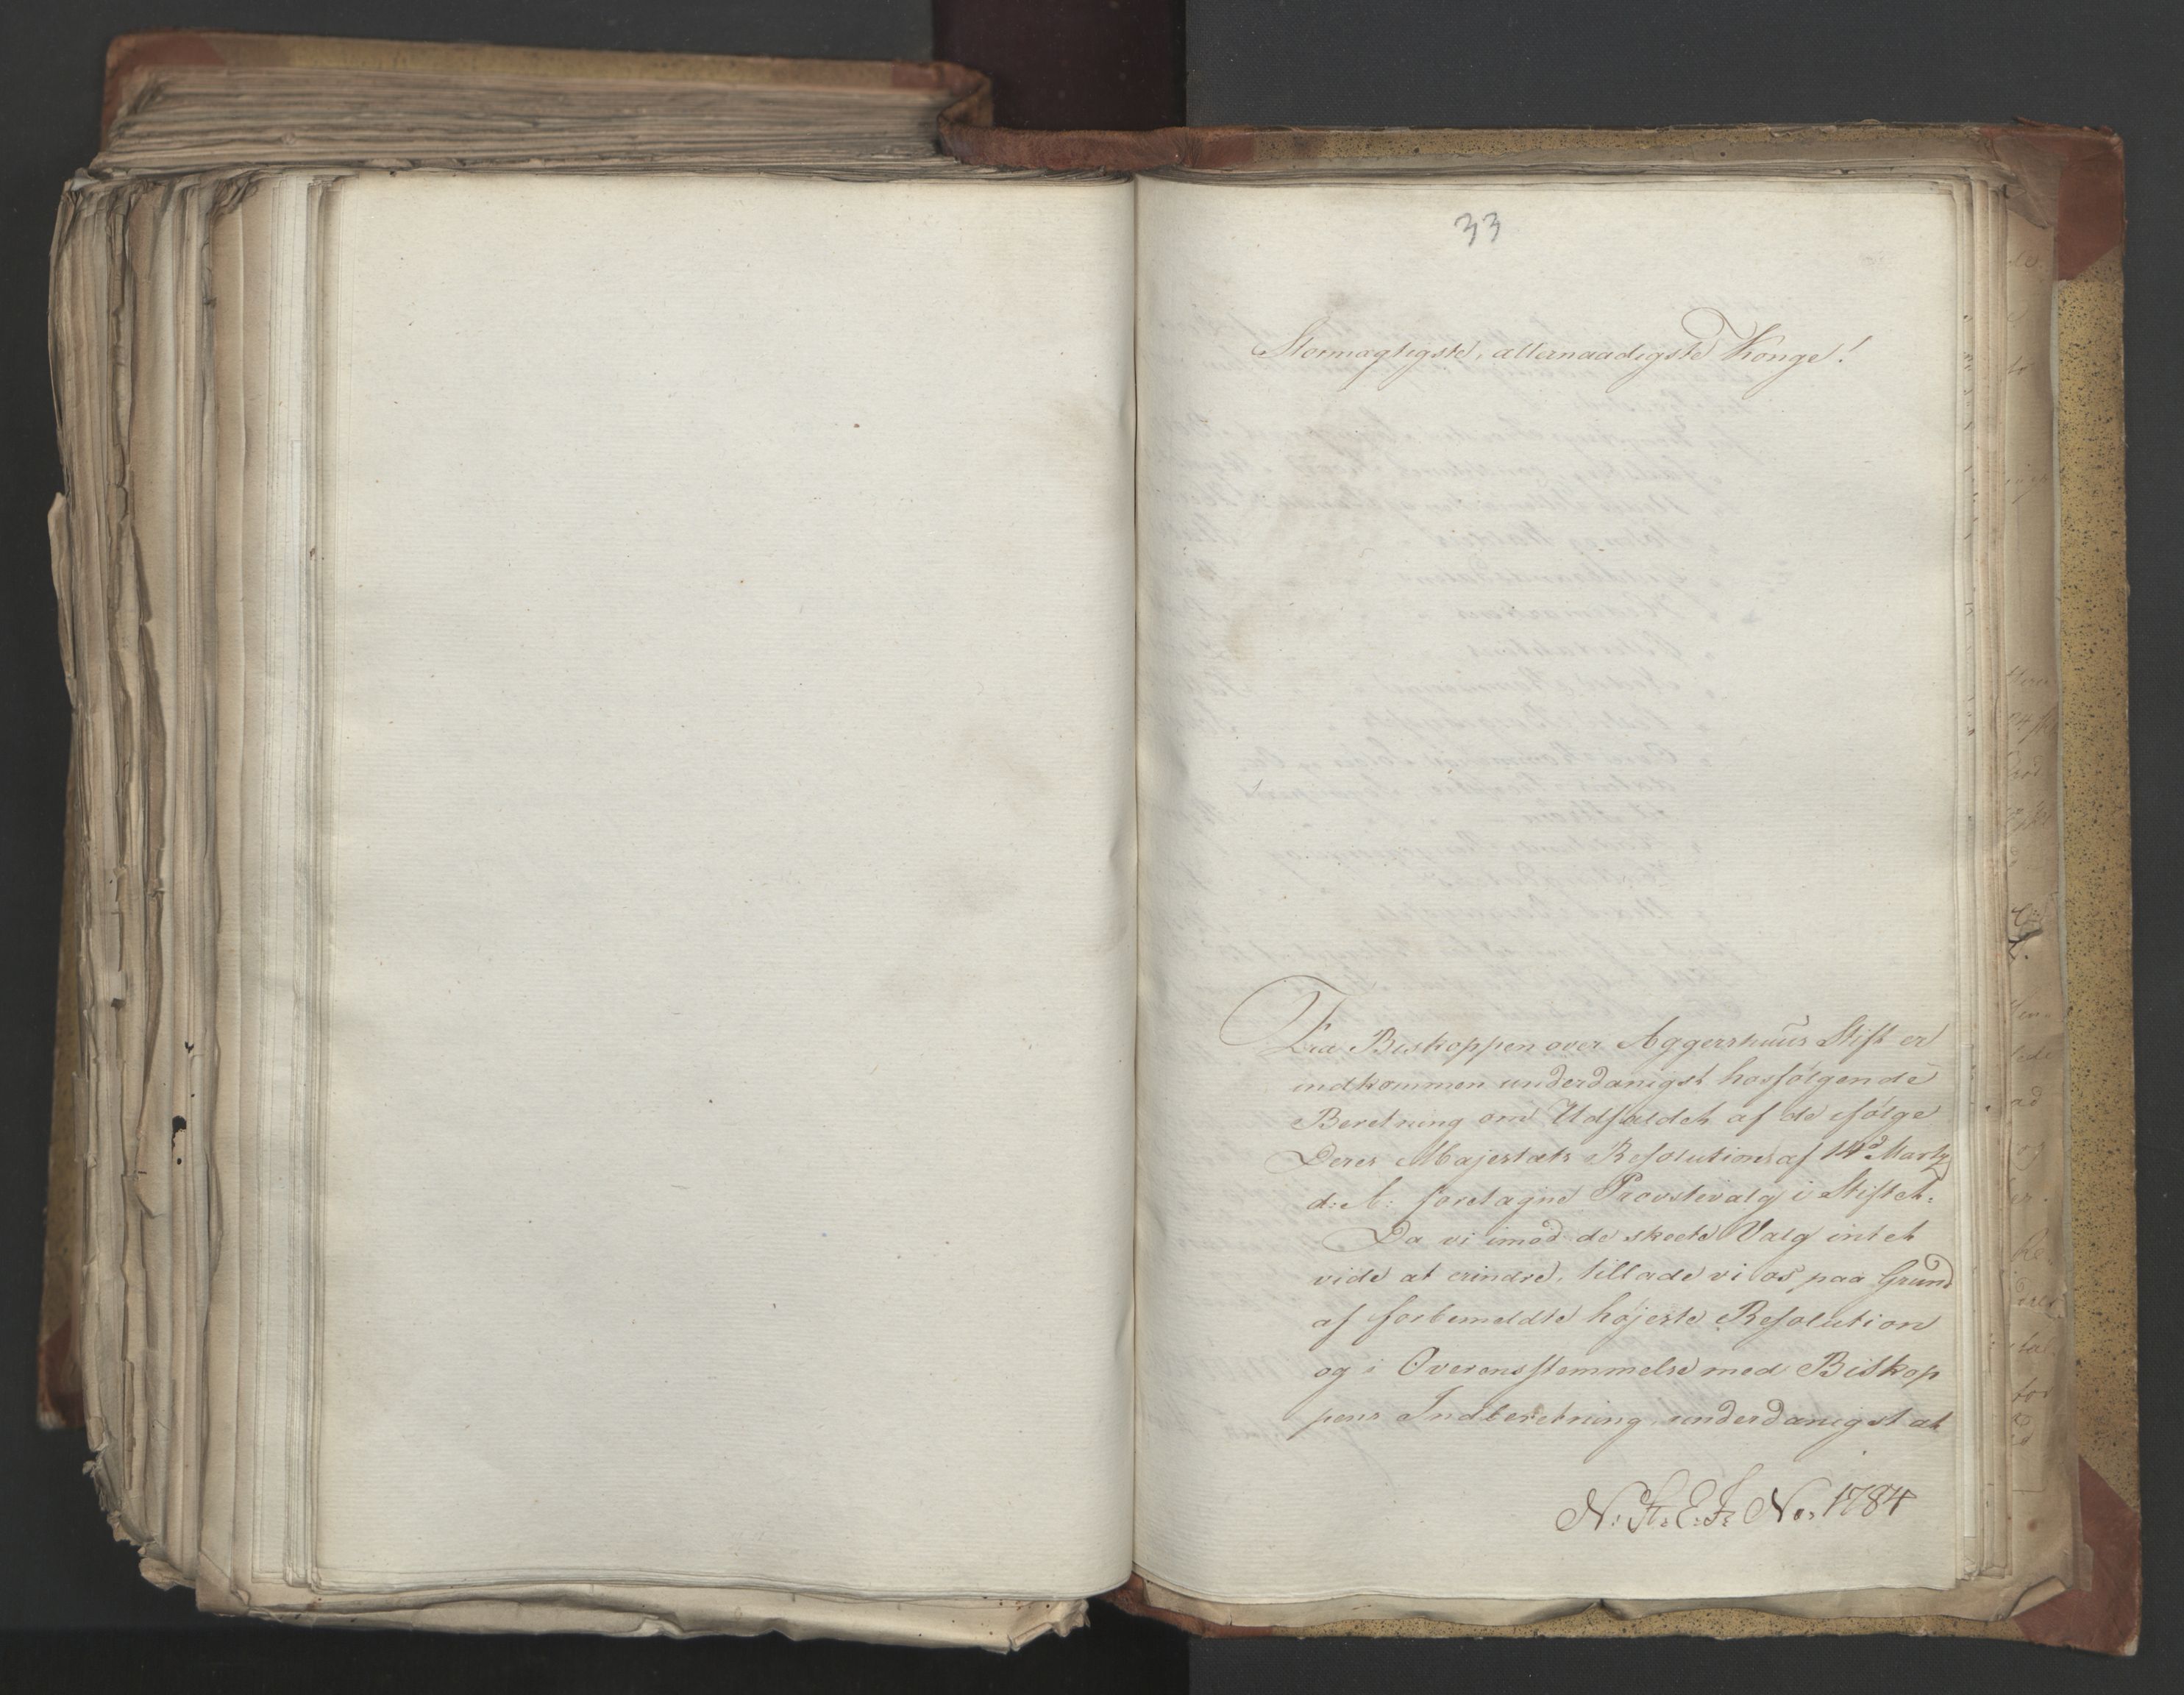 33
Stormægtigste, allernaadigste Konge!
Fra Biskoppen over Aggershuus Stift er
indkommen underdanigst hosfølgende
Beretning om Udfaldet af de ifølge
Deres Majestæts Resolution af 14d Marty
d: A: foretagne Provstevalg i Stiftet.
Da vi imod de skeete Valg intet
vide at erindre, tillade vi os, paa Grund
af forbemeldte højeste Resolution
og i Overensstemmelse med Biskop
pens Indberetning, underdanigst at
N: St: E: F: No. 1784